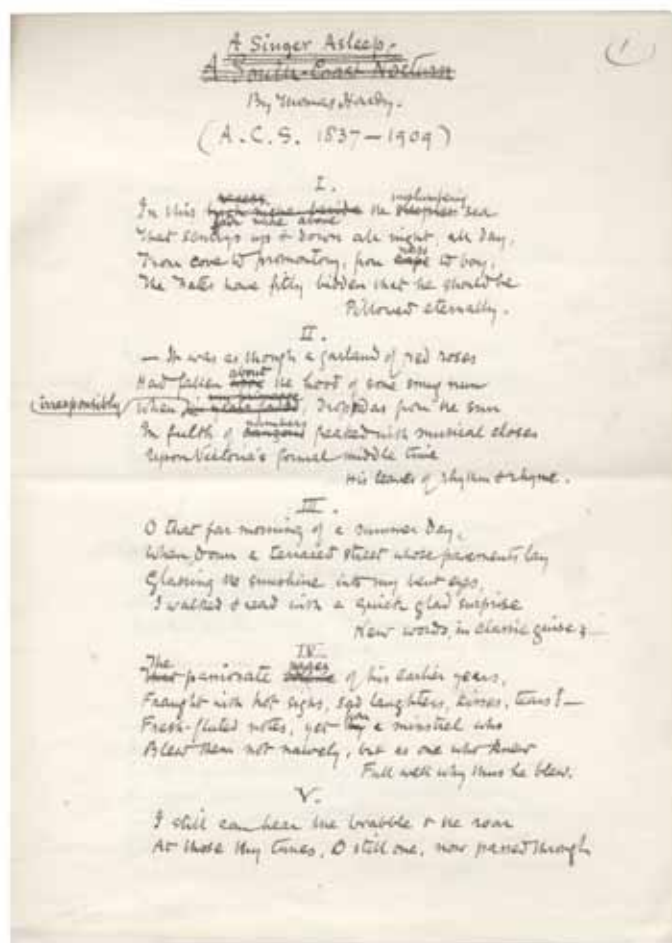 A Singer Asleep.
A South-Coast Nocturn
1
By Thomas Hardy.
(A.C.S. 1837–1909)
I.
In this fair niche above the unslumbering sea
That sentrys up & down all night, all day,
From cove to promontory, from ness to bay,
The Fates have fitly bidden that he should be
Pillowed eternally.
II.
— It was as though a garland of red roses
Had fallen about the hood of some smug nun
When irresponsibly dropped as from the sun
In fulth of numbers freaked with musical closes
Upon Victoria's formal middle time
His leaves of rhythm & rhyme.
III.
O that far morning of a summer day,
When, down a terraced street whose pavements lay
Glassing the sunshine into my bent eyes,
I walked & read with a quick glad surprise
New words, in classic guise;—
IV.
The passionate pages of his earlier years,
Fraught with hot sighs, sad laughters, kisses, tears!—
Fresh-fluted notes, yet from a minstrel who
Blew them not naively, but as one who knew
Full well why thus he blew.
V.
I still can hear the brabble & the roar
At those thy tunes, O still one, now passed through